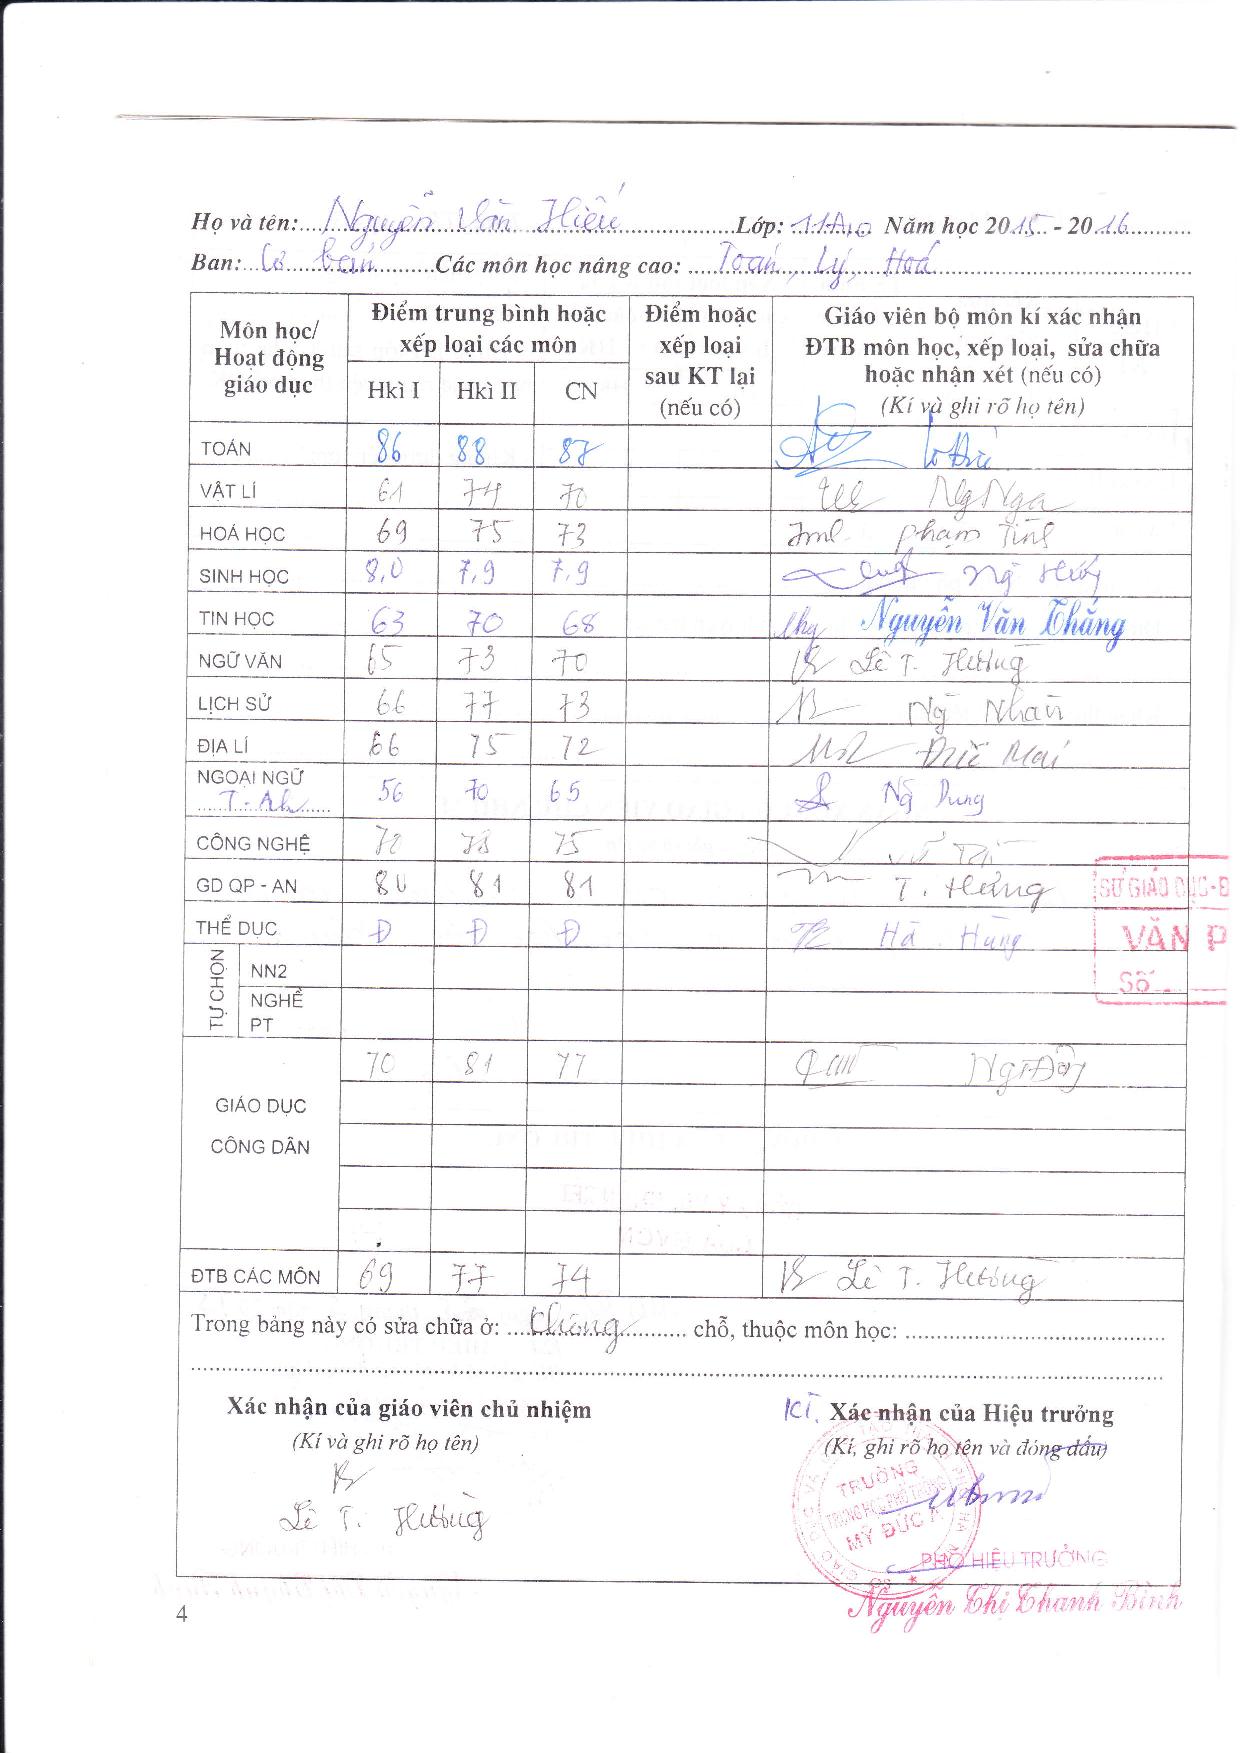 Họ và tên: Nguyễn Văn Hiếu Lớp: 11A10 Năm học 2015 - 2016
Ban: Cơ bản Các môn học nâng cao: Toán, Lý, Hoá
Môn học/ Hoạt động giáo dục Điểm trung bình hoặc xếp loại các môn Điểm hoặc xếp loại sau KT lại (nếu có) Giáo viên bộ môn kí xác nhận ĐTB môn học, xếp loại, sửa chữa hoặc nhận xét (nếu có) (Kí và ghi rõ họ tên)
Hkì I Hkì II CN
TOÁN 86 88 87
VẬT LÍ 61 74 70 Ng Nga
HOÁ HỌC 69 75 73 Phạm Tĩnh
SINH HỌC 8,0 7,9 7,9
TIN HỌC 63 70 68 Nguyễn Văn Thắng
NGỮ VĂN 65 73 70 Lê T. Hường
LỊCH SỬ 66 77 73 Ng Nhàn
ĐỊA LÍ 66 75 72 Mai
NGOẠI NGỮ T. Anh 56 70 65 Ng Dung
CÔNG NGHỆ 72 78 75
GD QP - AN 80 81 81 T. Hưng
SỞ GIÁO DỤC-Đ
THỂ DỤC Đ Đ Đ Hà Hùng
VĂN P
TỰ CHỌN NN2
Số
NGHỀ PT
GIÁO DỤC CÔNG DÂN 70 81 77
ĐTB CÁC MÔN 69 77 74 Lê T. Hường
Trong bảng này có sửa chữa ở: không chỗ, thuộc môn học:
Xác nhận của giáo viên chủ nhiệm KT. Xác nhận của Hiệu trưởng
(Kí và ghi rõ họ tên) (Kí, ghi rõ họ tên và đóng dấu)
TRƯỜNG
TRUNG HỌC PHỔ THÔNG
MỸ ĐỨC A
Lê T. Hường
PHÓ HIỆU TRƯỞNG
Nguyễn Thị Thanh Bình
4